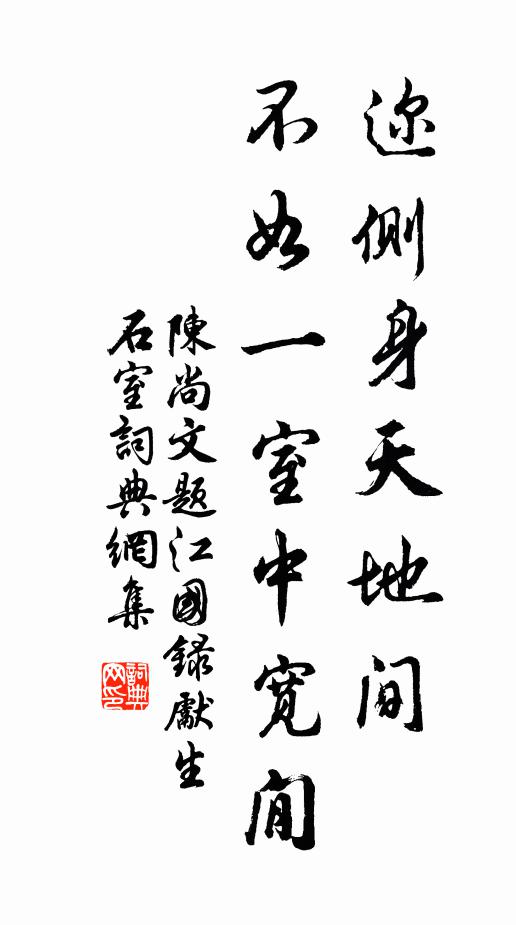 迩側身天地间
不如一室中寛閒
陳尚文题江國録獻生
石室詞典網集
詞典
网印